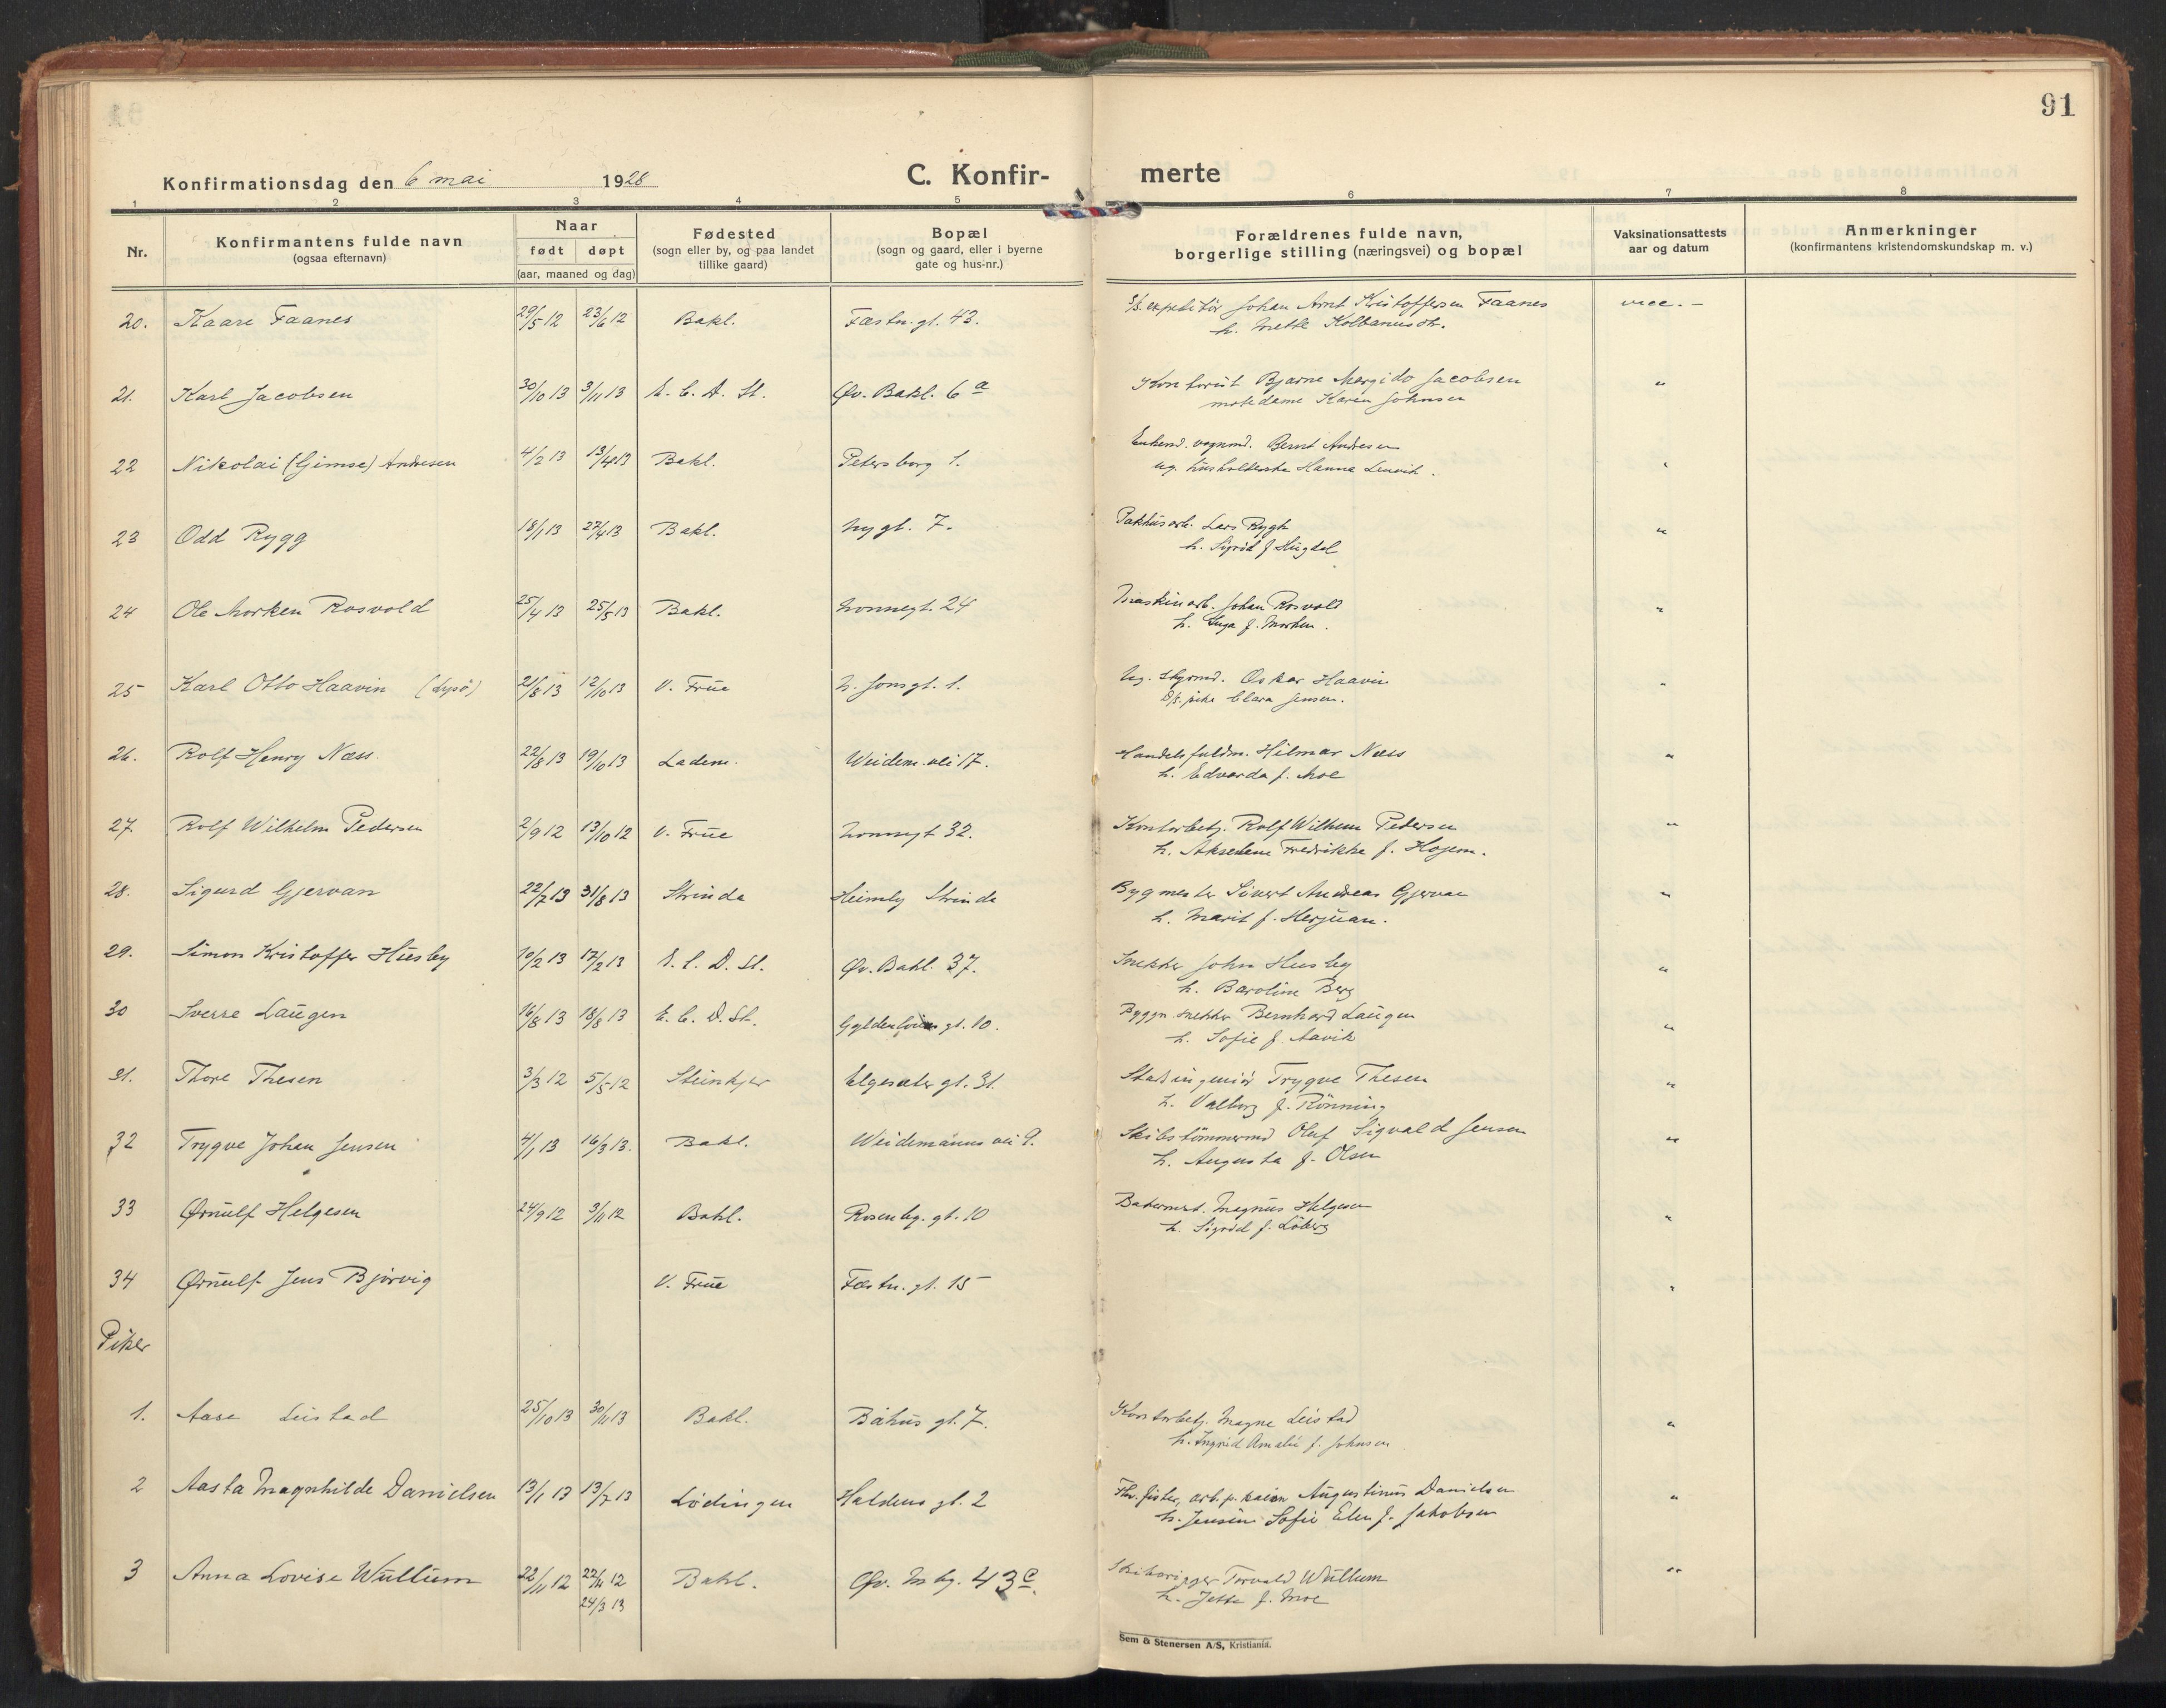 91
Konfirmationsdag den 6 mai 1928
C. Konfir- merte
1 2 3 4 5 6 7 8
Nr.
Konfirmantens fulde navn
(ogsaa efternavn)
Naar
født døpt
(aar, maaned og dag)
Fødested
(sogn eller by, og paa landet
tillike gaard)
Bopæl
(sogn og gaard, eller i byerne
gate og hus-nr.)
Forældrenes fulde navn,
borgerlige stilling (næringsvei) og bopæl
Vaksinationsattests
aar og datum
Anmerkninger
(konfirmantens kristendomskundskap m. v.)
20. Kaare Faanes 29/5 12 23/6 12 Bakl. Fæstn. gt. 43. expeditør Johan Arnt Kristoffersen Faanes
h. Mette Kolbanusdt.
21. Karl Jacobsen 30/10 13 3/11 13 E. C. D. St. Øv. Bakl. 6 a Kontorist Bjarne Margido Jacobsen "
motedame Karen Johnsen
22 Nikolai (Gimse) Andresen 4/2 13 13/4 13 Bakl. Petersborg 1. Enkemd. vognmd. Bernt Andresen "
ug. husholderske Hanna Lenvik.
23 Odd Rygg 18/1 13 27/4 13 Bakl. Nygt. 7. Pakhusarb. Lars Rygh "
h. Sigrid f. Hugdal
24 Ole Morken Rosvold 25/4 13 25/5 13 Bakl. Nonnegt. 24 Maskinarb. Johan Rosvold "
h. Inga f. Morken.
25 Karl Otto Haavin (Lysö) 21/8 13 12/10 13 V. Frue N. Jonsgt. 1. Ug. Styrmd. Oskar Haavin "
pike Clara Jensen.
26. Rolf Henry Næss 22/8 13 19/10 13 Ladem. Weidem. vei 17. Handelsfuldm. Hilmar Næss "
h. Edvarda f. Moe
27 Rolf Wilhelm Pedersen 2/9 12 13/10 12 V. Frue Nonnegt 32. Kontorbetj. Rolf Wilhem Pedersen "
h. Akseline Fredrikke f. Hojem.
28. Sigurd Gjervan 22/7 13 31/8 13 Strinda Heimly Strinda Bygmester Sivert Andreas Gjervan "
h. Marit f. Herjuan.
29. Simon Kristoffer Husby 10/2 13 17/2 13 E. C. D. St. Øv. Bakl. 37. Snekker John Husby "
h. Baroline Berg
30 Sverre Laugen 16/8 13 18/8 13 E. C. D. St. Gyldenløves gt. 10. Byggn. snekker Bernhard Laugen "
h. Sofie f. Aavik
31. Thore Thesen 3/3 12 5/5 12 Steinkjer Elgesæter gt. 31. Stadsingeniør Trygve Thesen "
h. Valborg f. Rönning
32 Trygve Johan Jensen 4/1 13 16/3 13. Bakl. Weidemanns vei 9. Skibstömmermd Oluf Sigvald Jensen "
h. Augusta f. Olsen
33 Ørnulf Helgesen 24/9 12 3/11 12 Bakl. Rosenbg. gt. 10 Bakermst. Magnus Helgesen "
h. Sigrid f. Löberg
34 Ørnulf Jens Bjørvig V. Frue Fæstn. gt. 15 "
Piker
1. Aase Leistad 25/10 13 30/11 13 Bakl. Båhus gt. 7. Kontorbetj. Magne Leistad "
h. Ingrid Amalie f. Johnsen
2 Aasta Magnhilde Danielsen 13/1 13 13/7 13 Lødingen Haldens gt. 2 Fhv. fisker, arb. p. kaien Augustinus Danielsen "
h. Jensine Sofie Elen f. Jakobsen
3 Anna Lovise Wullum 22/11 12 22/11 12 Bakl. Øv. Mbg. 43 c. Torvald Wullum "
24/3 13 h. Jette f. Moe
Sem & Stenersen A/S, Kristiania.